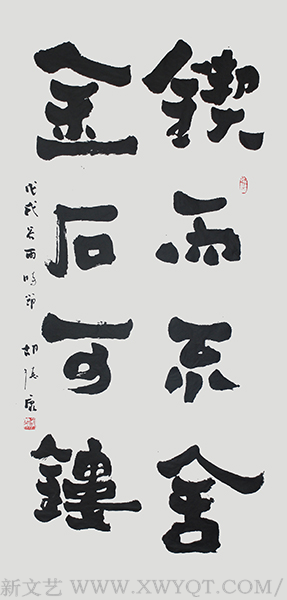 锲而不舍
金石可鏤
戊戌谷雨時節
胡
新文艺 WWW.XWYQT.COM/